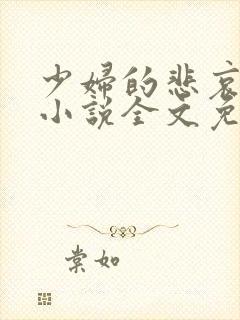 少婦的悲哀
小說全文免
棠如